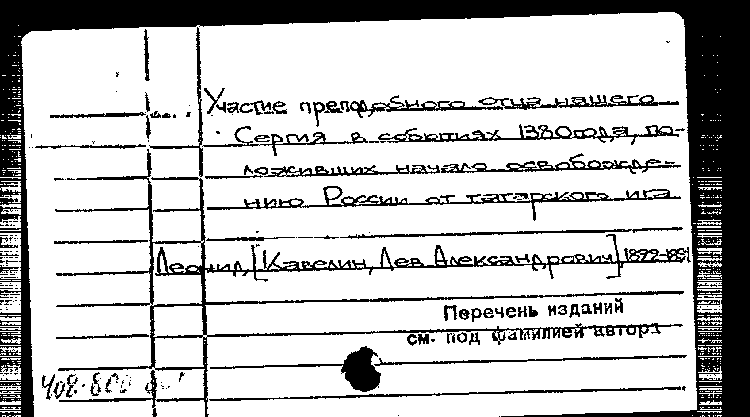 Участие преподобного отца нашего
Сергия в событиях 1380 года, по-
ложивших начало освобожде-
нию России от татарского ига
Леонид, [Кавелин, Лев Александрович] 1822-1891
Перечень изданий
см. под фамилией автора